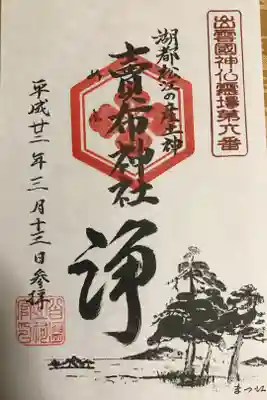 出雲國神仏霊場第六番
湖都松江の産土神
賣布神社
浄
平成廿二年三月十三日参拝
まつ江